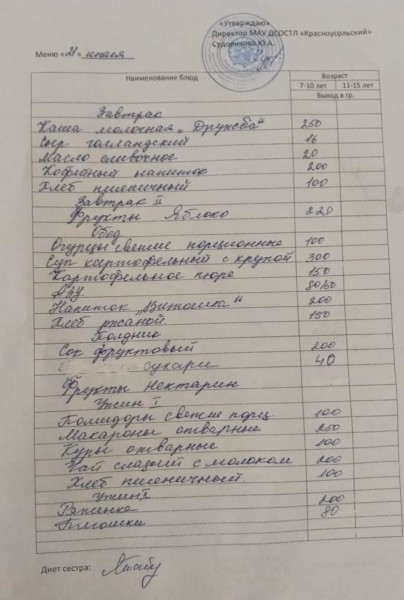 «Утверждаю»
Директор МАУ ДООСТЛ «Красноусольский»
Судорикова Ю.А.
Меню «21» июля
Наименование блюд Возраст
7-10 лет 11-15 лет
Выход в гр.
Завтрак
Каша молочная "Дружба" 250
Сыр голландский 16
Масло сливочное 20
Кофейный напиток 200
Хлеб пшеничный 100
Завтрак II
Фрукты Яблоко 220
Обед
Огурцы свежие порционные 100
Суп картофельный с крупой 300
Картофельное пюре 150
Азу 80/60
Напиток "Витошка" 200
Хлеб ржаной 150
Полдник
Сок фруктовый 200
Сухари 40
Фрукты Нектарин
Ужин I
Помидоры свежие порц 100
Макароны отварные 250
Куры отварные 100
Чай сладкий с молоком 200
Хлеб пшеничный 100
Ужин I
Ряженка 200
80
Диет сестра: